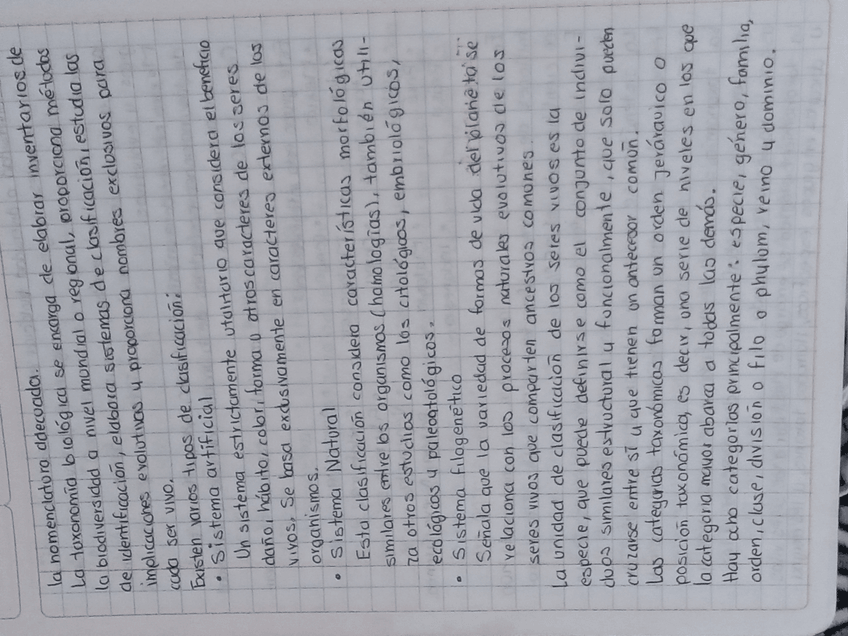 la nomenclatura adecuada.
La taxonomía biológica se encarga de elabrar inventarios de
la biodiversidad a nivel mundial o regional, proporciona métodos
de identificación, elabora sistemas de clasificación, estudia las
implicaciones evolutivas y proporciona nombres exclusivos para
cada ser vivo.
Existen varios tipos de clasificación:
• Sistema artificial
Un sistema estrictamente utalitario que considera el beneficio
daño, hábito, color, forma u otros caracteres de los seres
vivos. Se basa exclusivamente en caracteres externos de los
organismos.
• Sistema Natural
Esta clasificación considera características morfológicas
similares entre los organismos (homologías), también utili-
za otros estudios como los citológicos, embriológicos,
ecológicos y paleontológicos.
• Sistema filogenético
Señala que la variedad de formas de vida del planeta se
relaciona con los procesos naturales evolutivos de los
seres vivos que comparten ancestros comunes.
La unidad de clasificación de los seres vivos es la
especie, que puede definirse como el conjunto de indivi-
duos similares estructural y funcionalmente, que solo pueden
cruzarse entre sí y que tienen un antecesor común.
Las categorías taxonómicas forman un orden jerárquico o
posición taxonómica, es decir, una serie de niveles en los que
la categoría mayor abarca a todas las demás.
Hay ocho categorías principalmente: especie, género, familia,
orden, clase, división o filo o phylum, reino y dominio.